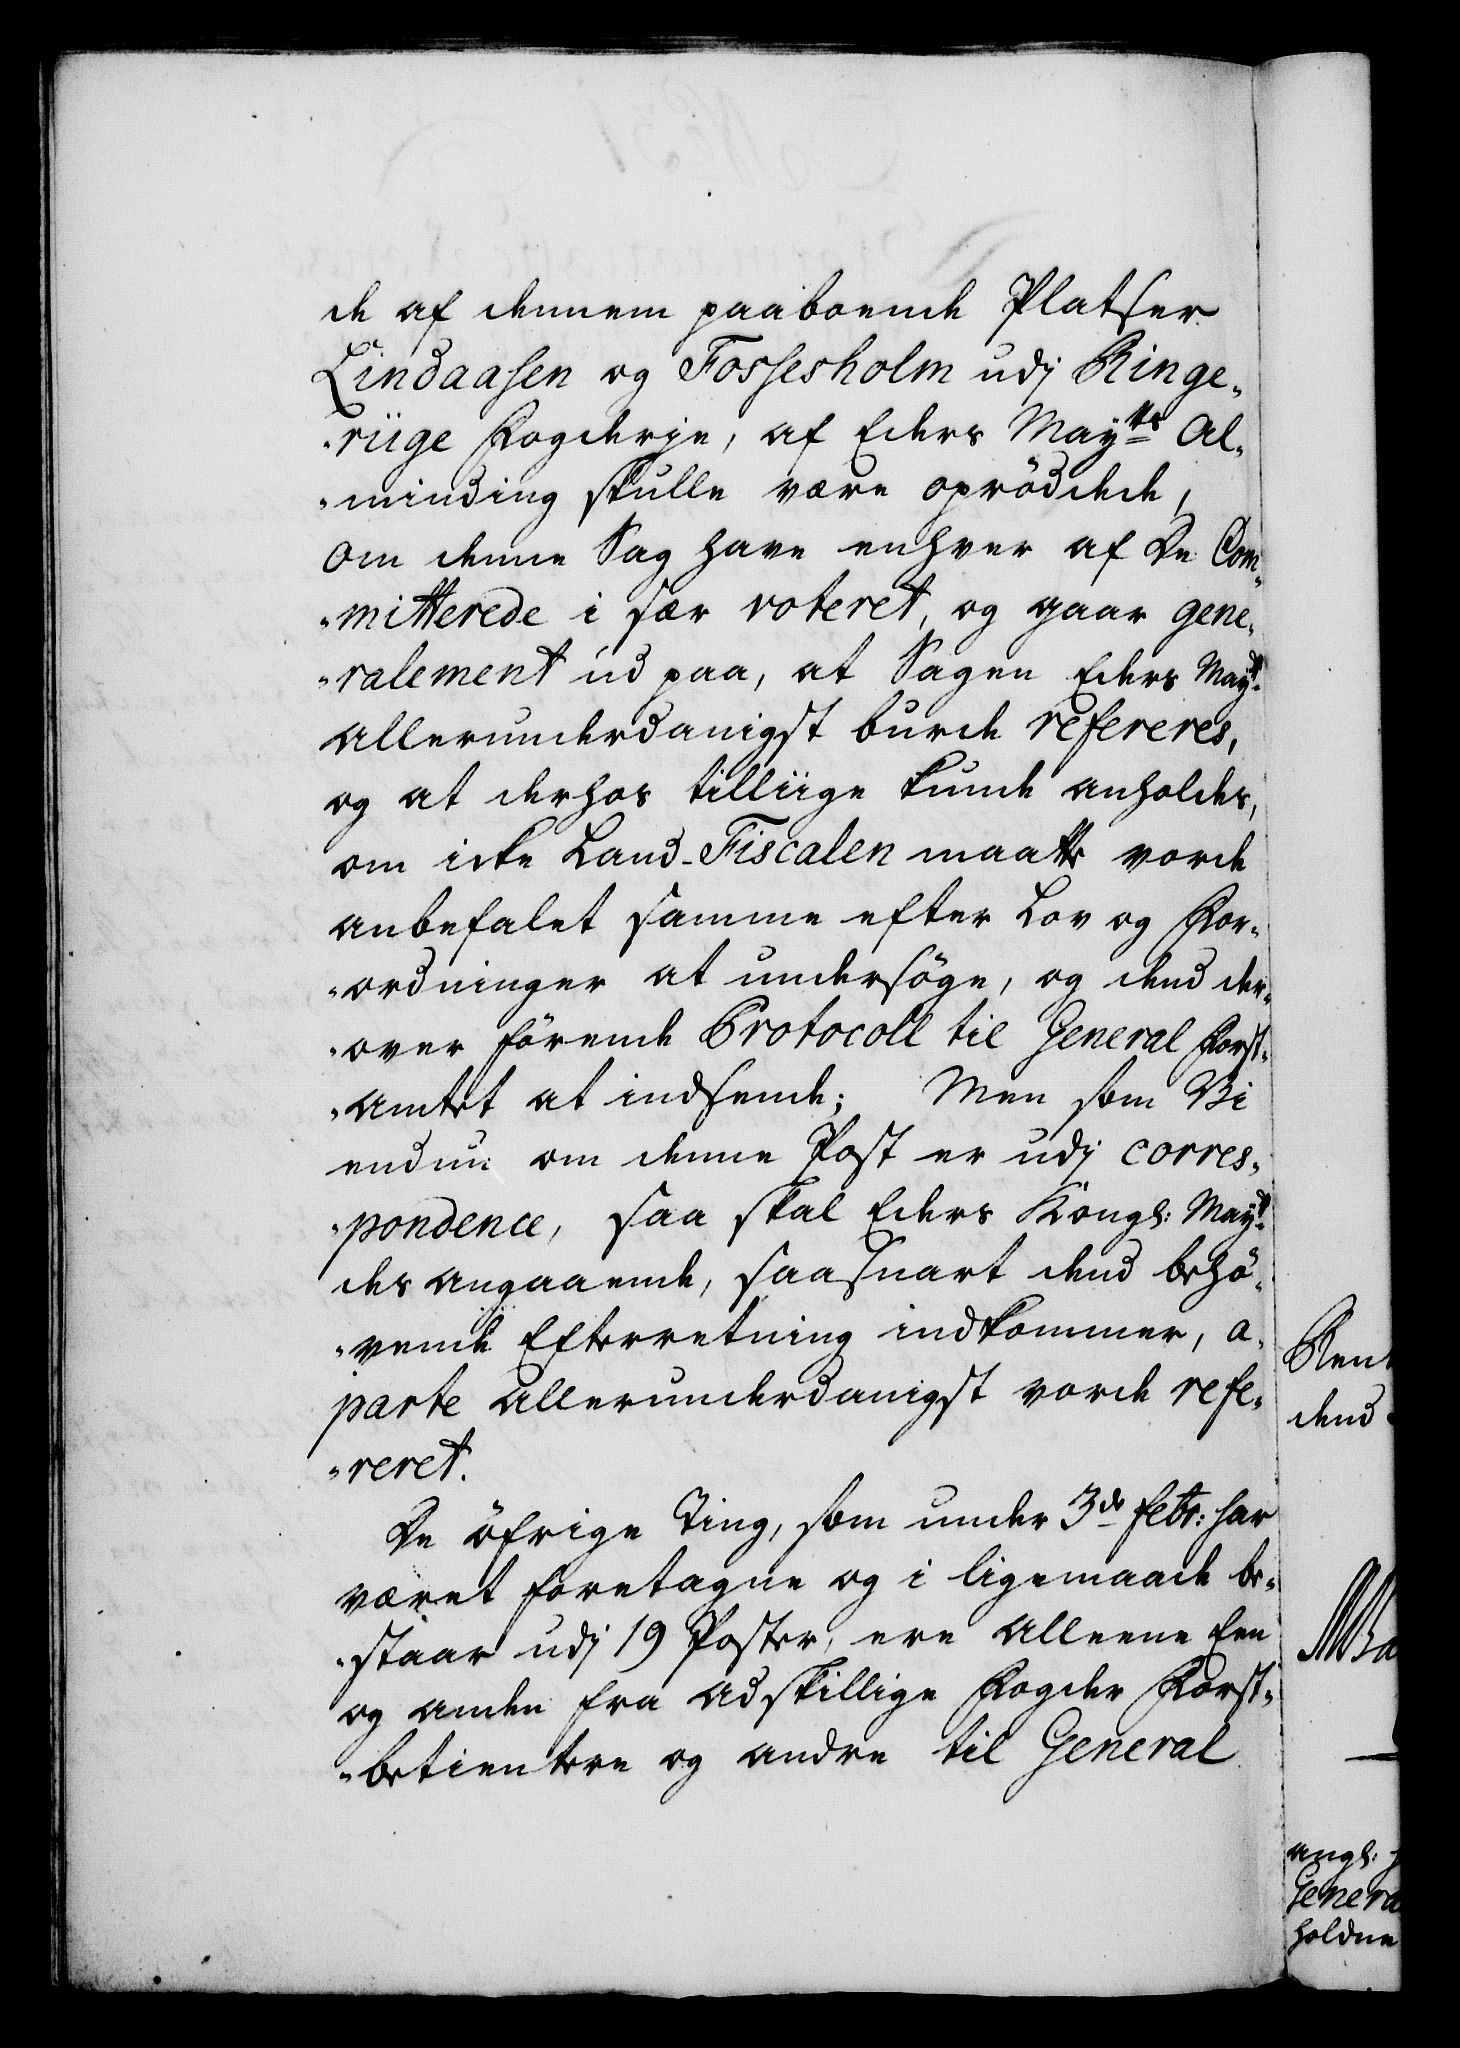 de af dennem paaboende Platser
Lindaasen og Fossesholm udj Ringe„
„riige Fogderje, af Eders May:tts Al„
„minding skulle være opröddede,
Om denne Sag have enhver af De Com„
„mitterede i sær voteret, og gaar gene„
„ralement ud paa, at Sagen Eders May:tt
allerunderdanigst burde refereres,
og at derhos tilliige kunde anholdes,
om icke Land-Fiscalen maatte vorde
anbefalet samme efter Lov og For„
„ordninger at undersöge, og dend der„
„over förende Protocoll til General Forst„
„amtet at indsende; Men som Vi
endnu om denne Post er udj corres„
„pondence, saa skal Eders Kongl: May:tt
des angaaende, saasnart dend behö„
„vende Efterretning indkommer, a„
parte allerunderdanigst vorde refe„
„reret.
De öfrige Ting, som under 3de Febr: har
været foretagne og i ligemaade be„
„staar udj 19 Poster, ere alleene Een
og anden fra adskillige Fogder Forst„
„betientere og andre til General
Rent
dend
angl:
Genera
holdne